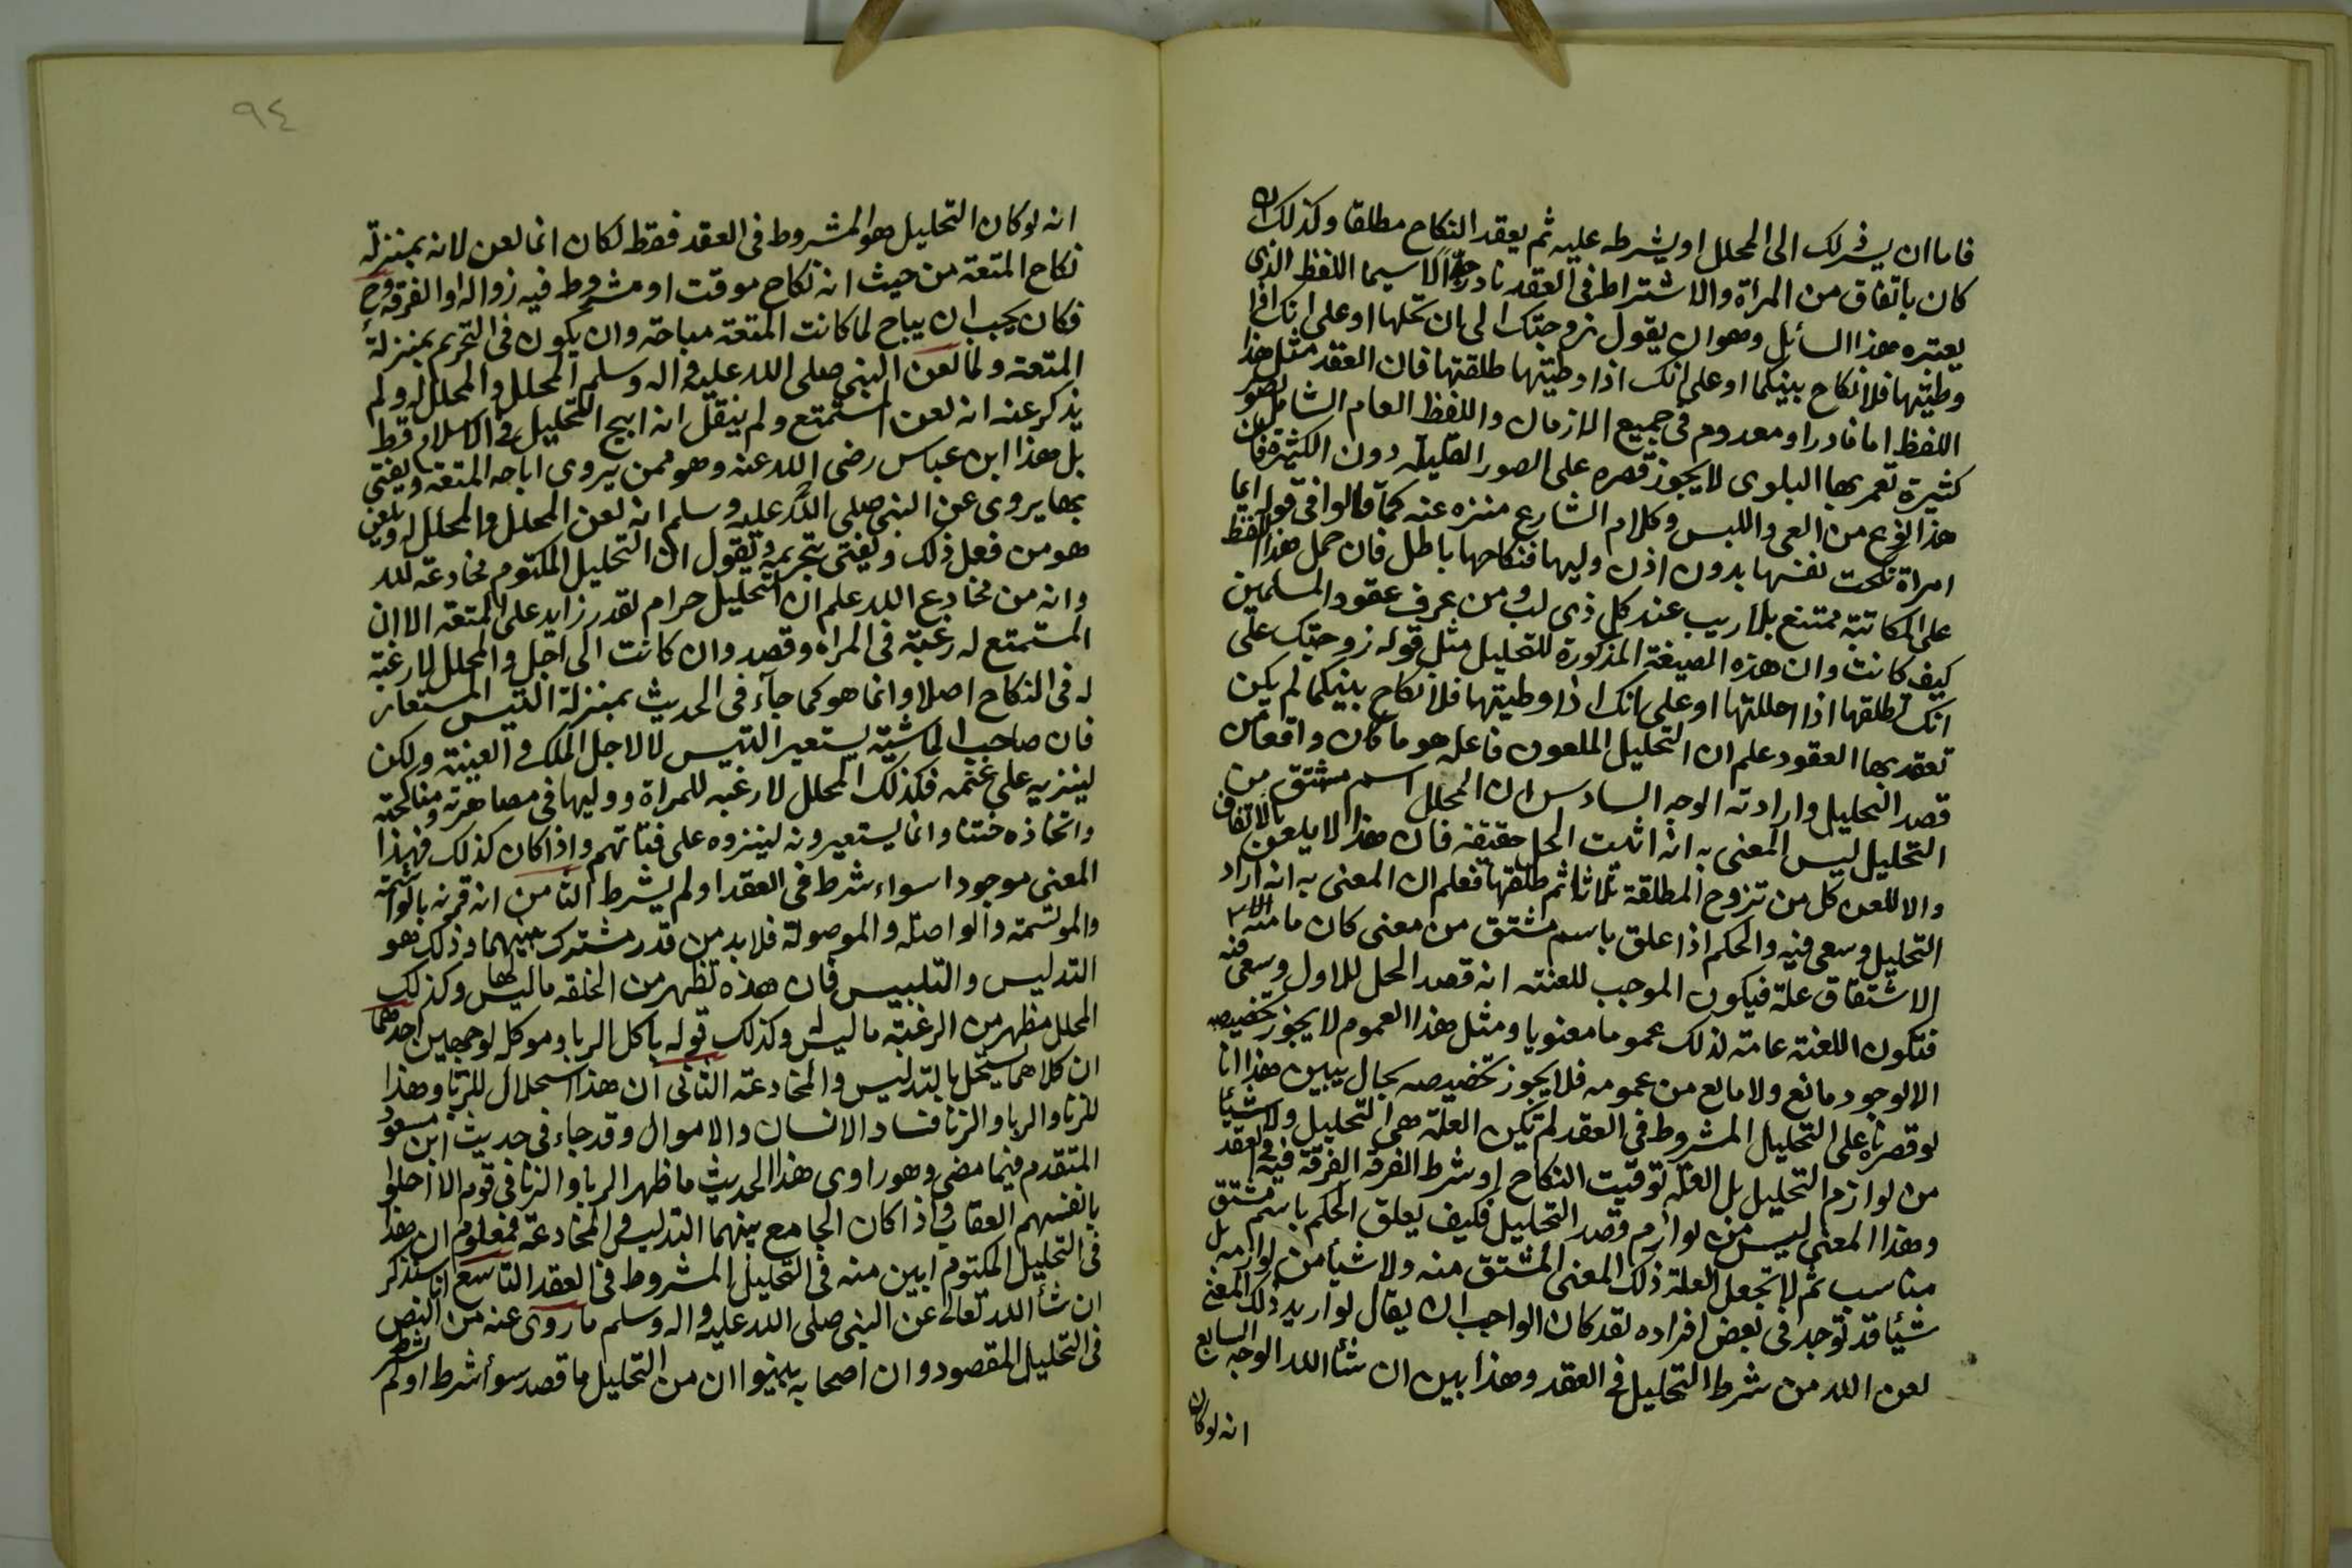 فاما ان يشرلك الى المحلل او يشرطه عليه ثم يعقد النكاح مطلقا وكذلك ان
كان باتفاق من المراة والاشتراط فى العقد نادر جدا لا سيما اللفظ الذى
يعتبره هذا السائل وهو ان يقول زوجتك الى ان تحلها او على انك اذا
وطيتها فلا نكاح بينكما او على انك اذا وطيتها طلقتها فان العقد مثل هذا
اللفظ اما نادر او معدوم فى جميع الازمان واللفظ العام الشامل لصور
كثيرة تعمر بها البلوى لا يجوز قصره على الصور القليله دون الكثيرة فان
هذا نوع من العى واللبس وكلام الشارع منزه عنه كما قالوا فى قوله ايما
امراة نكحت نفسها بدون اذن وليها فنكاحها باطل فان حمل هذا اللفظ
على المكاتبة ممتنع بلا ريب عند كل ذى لب ومن عرف عقود المسلمين
كيف كانت وان هذه الصيغة المذكورة للتحليل مثل قوله زوجتك على
انك تطلقها اذا احللتها او على انك اذا وطيتها فلا نكاح بينكما لم يكن
تعقد بها العقود علم ان التحليل الملعون فاعله هو ما كان واقعا من
قصد التحليل وارادته الوجه السادس ان المحلل اسم مشتق من
التحليل ليس المعنى به انه اثبت الحل حقيقة فان هذا لا يلعن بالاتفاق
والا للعن كل من تزوج المطلقة ثلاثا ثم طلقها فعلم ان المعنى به انه اراد
التحليل وسعى فيه والحكم اذا علق باسم مشتق من معنى كان ما منه
الاشتقاق علة فيكون الموجب للعنته انه قصد الحل للاول وسعى فيه
فتكون اللعنة عامة لذلك عموما معنويا ومثل هذا العموم لا يجوز تخصيصه
الا لوجود مانع ولا مانع من عمومه فلا يجوز تخصيصه بحال يبين هذا انا
لو قصرناه على التحليل المشروط فى العقد لم تكن العلة هى التحليل ولا شيئا
من لوازم التحليل بل العلة توقيت النكاح او شرط الفرقة الفرقة فيه فى العقد
وهذا المعنى ليس من لوازم قصد التحليل فكيف يعلق الحكم باسم مشتق
مناسب ثم لا تجعل العلة ذلك المعنى المشتق منه ولا شيئا من لوازمه بل
شيئا قد توجد فى بعض افراده لقد كان الواجب ان يقال لو اريد ذلك المعنى
لعن الله من شرط التحليل فى العقد وهذا بين ان شاء الله الوجه السابع
انه لو كان
٩٤
انه لو كان التحليل هو المشروط فى العقد فقط لكان انما لعن لانه بمنزلة
نكاح المتعة من حيث انه نكاح موقت او مشروط فيه زواله او الفرقة وح
فكان يجب ان يباح لما كانت المتعة مباحة وان يكون فى التحريم بمنزلة
المتعة ولما لعن النبى صلى الله عليه واله وسلم المحلل والمحلل له ولم
يذكر عنه انه لعن المستمتع ولم ينقل انه ابيح التحليل فى الاسلام قط
بل هذا ابن عباس رضى الله عنه وهو ممن يروى اباحه المتعة ويفتى
بها يروى عن النبى صلى الله عليه وسلم انه لعن المحلل والمحلل له ويلعن
هو من فعل ذلك ويفتى بتحريمه ويقول ان التحليل المكتوم مخادعة لله
وانه من يخادع الله علم ان التحليل حرام لقدر زايد على المتعة الا ان
المستمتع له رغبة فى المراه وقصد وان كانت الى اجل والمحلل لا رغبة
له فى النكاح اصلا وانما هو كما جآء فى الحديث بمنزلة التيس المستعار
فان صاحب الماشية يستعير التيس لا لاجل الملك والعينة ولكن
لينزيه على غنمه فكذلك المحلل لا رغبه للمراة ووليها فى مصاهرته ومناكحته
واتخاذه ختنا وانما يستعيرونه لينزوه على فتاتهم واذا كان كذلك فهذا
المعنى موجودا سواء شرط فى العقد او لم يشرط الثامن انه قرنه بالواشمة
والموتشمة والواصله والموصولة فلا بد من قدر مشترك بينهما وذلك هو
التدليس والتلبيس فان هذه تظهر من الخلقه ما ليس لها وكذلك
المحلل مظهر من الرغبة ما ليس له وكذلك قوله باكل الربا وموكله لوجهين احدهما
ان كلاهما يستحل بالتدليس والمخادعة الثانى ان هذا استحلال للربا وهذا
للزنا والربا والزنا فساد الانسان والاموال وقد جاء فى حديث ابن مسعود
المتقدم فيما مضى وهو راوى هذا الحديث ما ظهر الربا والزنا فى قوم الا احلوا
بانفسهم العقاب واذا كان الجامع بينهما التدليس والمخادعة فمعلوم ان هذا
فى التحليل المكتوم ابين منه فى التحليل المشروط فى العقد التاسع انا سنذكر
ان شآ الله تعالى عن النبى صلى الله عليه واله وسلم ما روى عنه من النص
فى التحليل المقصود وان اصحابه بينوا ان من التحليل ما قصد سوآ شرط او لم يشرط